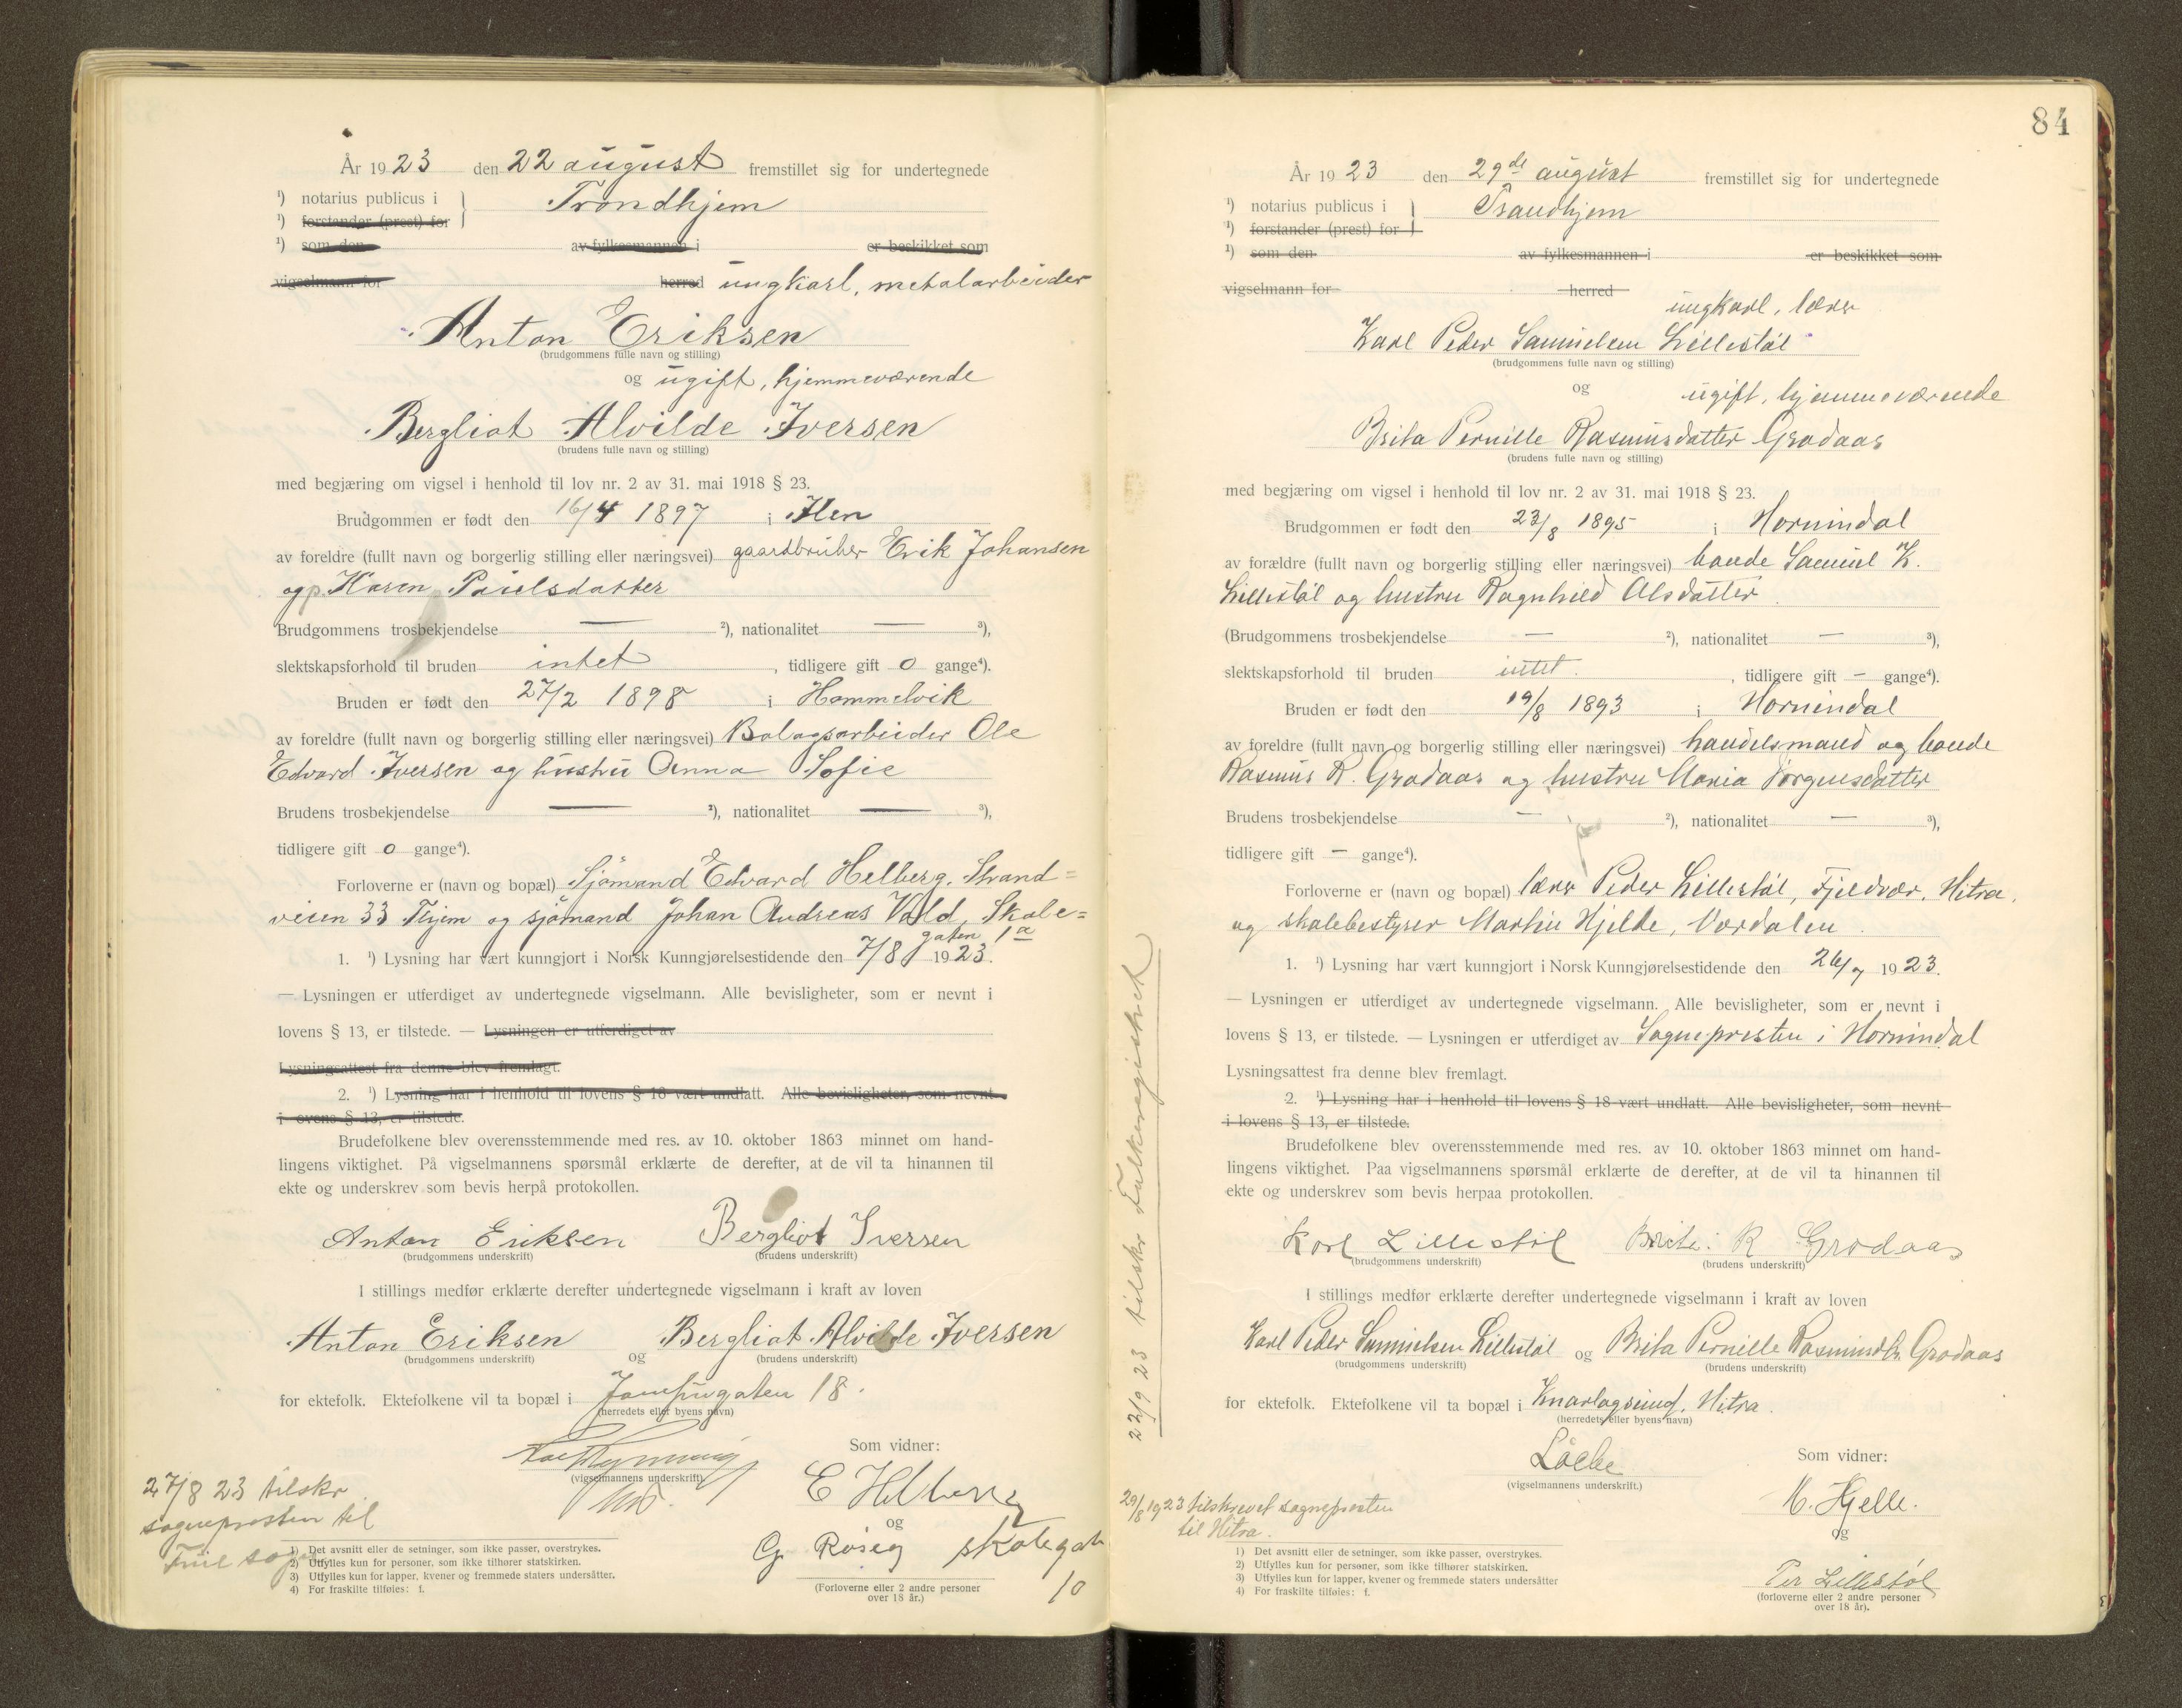 År 1923 den 22 august fremstillet sig for undertegnede
¹) notarius publicus i Trondhjem
¹) forstander (prest) for
¹) som den av fylkesmannen i er beskikket som
vigselmann for herred ungkarl, metalarbeider
Anton Eriksen
(brudgommens fulle navn og stilling)
og ugift, hjemmeværende
Bergliot Alvilde Iversen
(brudens fulle navn og stilling)
med begjæring om vigsel i henhold til lov nr. 2 av 31. mai 1918 § 23.
Brudgommen er født den 16/4 1897 i Ilen
av foreldre (fullt navn og borgerlig stilling eller næringsvei) gaardbruker Erik Johansen
og p. Karen Paulsdatter
Brudgommens trosbekjendelse — ²), nationalitet — ³),
slektskapsforhold til bruden intet, tidligere gift 0 gange⁴).
Bruden er født den 27/2 1898 i Hommelvik
av foreldre (fullt navn og borgerlig stilling eller næringsvei) Bolagsarbeider Ole
Edvard Iversen og hustru Anna Sofie
Brudens trosbekjendelse — ²), nationalitet — ³),
tidligere gift 0 gange⁴).
Forloverne er (navn og bopæl) Sjømand Edvard Helberg, Strand=
veien 33 Thjem og sjømand Johan Andreas Vold, Skole=
gaten 1a
1. ¹) Lysning har vært kunngjort i Norsk Kunngjørelsestidende den 7/8 1923.
— Lysningen er utferdiget av undertegnede vigselmann. Alle bevisligheter, som er nevnt i
lovens § 13, er tilstede. — Lysningen er utferdiget av
Lysningsattest fra denne blev fremlagt.
2. ¹) Lysning har i henhold til lovens § 18 vært undlatt. Alle bevisligheter, som nevnt
i ovens § 13, er tilstede.
Brudefolkene blev overensstemmende med res. av 10. oktober 1863 minnet om hand-
lingens viktighet. På vigselmannens spørsmål erklærte de derefter, at de vil ta hinannen til
ekte og underskrev som bevis herpå protokollen.
Anton Eriksen Bergliot Iversen
(brudgommens underskrift) (brudens underskrift)
I stillings medfør erklærte derefter undertegnede vigselmann i kraft av loven
Anton Eriksen og Bergliot Alvilde Iversen
(brudgommens underskrift) (brudens underskrift)
for ektefolk. Ektefolkene vil ta bopæl i Jomfrugaten 18.
(herredets eller byens navn)
Som vidner:
(vigselmannens underskrift)
E Helberg
og
G Roseg skolegat
10
(Forloverne eller 2 andre personer
over 18 år.)
27/8 23 tilskr.
sognepresten til
1) Det avsnitt eller de setninger, som ikke passer, overstrykes.
2) Utfylles kun for personer, som ikke tilhører statskirken.
3) Utfylles kun for lapper, kvener og fremmede staters undersåtter.
4) For fraskilte tilføies: f.
84
År 1923 den 29de august fremstillet sig for undertegnede
¹) notarius publicus i Trondhjem
¹) forstander (prest) for
¹) som den av fylkesmannen i er beskikket som
vigselmann for herred
ungkarl, lærer
Karl Peder Samuelsen Lillestøl
(brudgommens fulle navn og stilling)
og ugift, hjemmeværende
Brita Pernille Rasmusdatter Grodaas
(brudens fulle navn og stilling)
med begjæring om vigsel i henhold til lov nr. 2 av 31. mai 1918 § 23.
Brudgommen er født den 23/8 1895 i Hornindal
av forældre (fullt navn og borgerlig stilling eller næringsvei) bonde Samuel K.
Lillestøl og hustru Ragnhild Olsdatter
(Brudgommens trosbekjendelse — ²), nationalitet — ³),
slektskapsforhold til bruden intet., tidligere gift — gange⁴).
Bruden er født den 19/8 1893 i Hornindal
av foreldre (fullt navn og borgerlig stilling eller næringsvei) handelsmand og bonde
Rasmus R. Grodaas og hustru Maria Jørgensdatter
Brudens trosbekjendelse — ²), nationalitet — ³),
tidligere gift — gange⁴).
Forloverne er (navn og bopæl) lærer Peder Lillestøl, Fjeldvær, Hitra,
og skolebestyrer Martin Hjelde, Værdalen.
1. ¹) Lysning har vært kunngjort i Norsk Kunngjørelsestidende den 26/7 1923.
— Lysningen er utferdiget av undertegnede vigselmann. Alle bevisligheter, som er nevnt i
lovens § 13, er tilstede. — Lysningen er utferdiget av Sognepresten i Hornindal
Lysningsattest fra denne blev fremlagt.
2. ¹) Lysning har i henhold til lovens § 18 vært undlatt. Alle bevisligheter, som nevnt
i lovens § 13, er tilstede.
Brudefolkene blev overensstemmende med res. av 10. oktober 1863 minnet om hand-
lingens viktighet. Paa vigselmannens spørsmål erklærte de derefter, at de vil ta hinannen til
ekte og underskrev som bevis herpaa protokollen.
Karl Lillestøl Brita R Grodaas
(brudgommens underskrift) (brudens underskrift)
I stillings medfør erklærte derefter undertegnede vigselmann i kraft av loven
Karl Peder Samuelsen Lillestøl og Brita Pernille Rasmusdtr. Grodaas
(brudgommens underskrift) (brudens underskrift)
for ektefolk. Ektefolkene vil ta bopæl i Knarlagsund, Hitra.
(herredets eller byens navn)
Som vidner:
(vigselmannens underskrift.)
M. Hjelle.
og
Per Lillestøl
(forloverne eller 2 andre personer
over 18 år).
22/9 23 tilskr Folkeregistret
29/8 1923 tilskrevet sognepresten
til Hitra.
1) Det avsnitt eller de setninger, som ikke passer, overstrykes.
2) Utfylles kun for personer, som ikke tilhører statskirken.
3) Utfylles kun for lapper, kvener og fremmede staters undersåtter
4) For fraskilte tilføies: f.